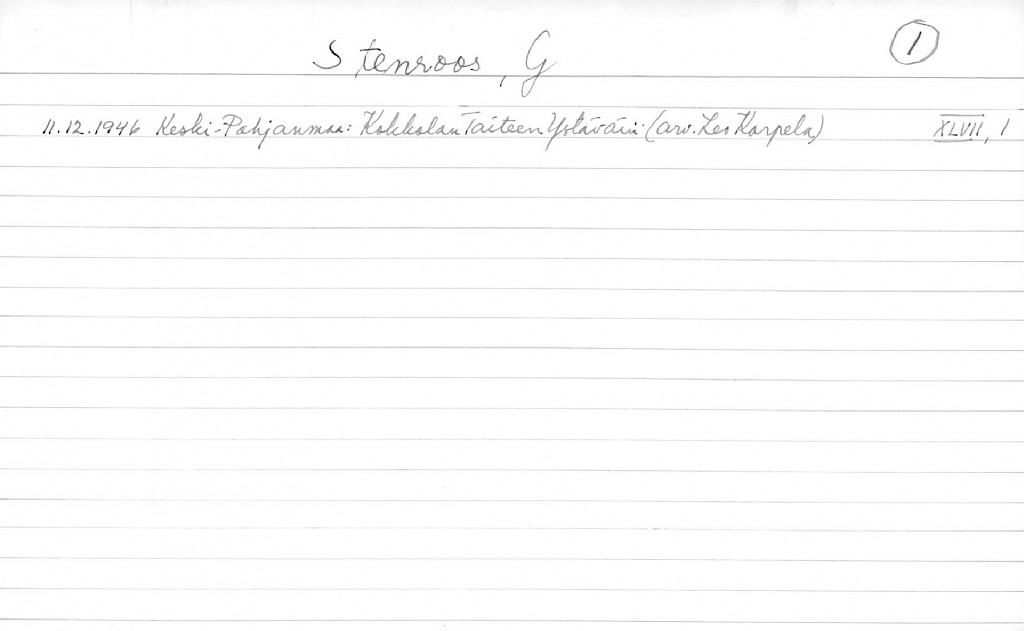 Stenroos, G
1
11.12.1946 Keski-Pohjanmaa: Kokkolan Taiteen Ystäväin (arv. Leo Karpela) XLVII, 1